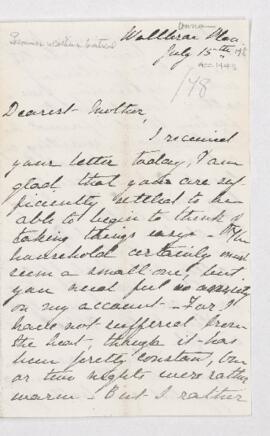 July 15th
148
Dearest Mother,
I received
your letter today, I am
glad that you are suf-
ficiently settled to be
able to begin to think of
taking things easy -
household certainly must
seem a small one, but
you need feel no anxiety
on my account - For I
have not suffered from
the heat, though it has
been pretty constant, one
or two nights were rather
warm - But I rather